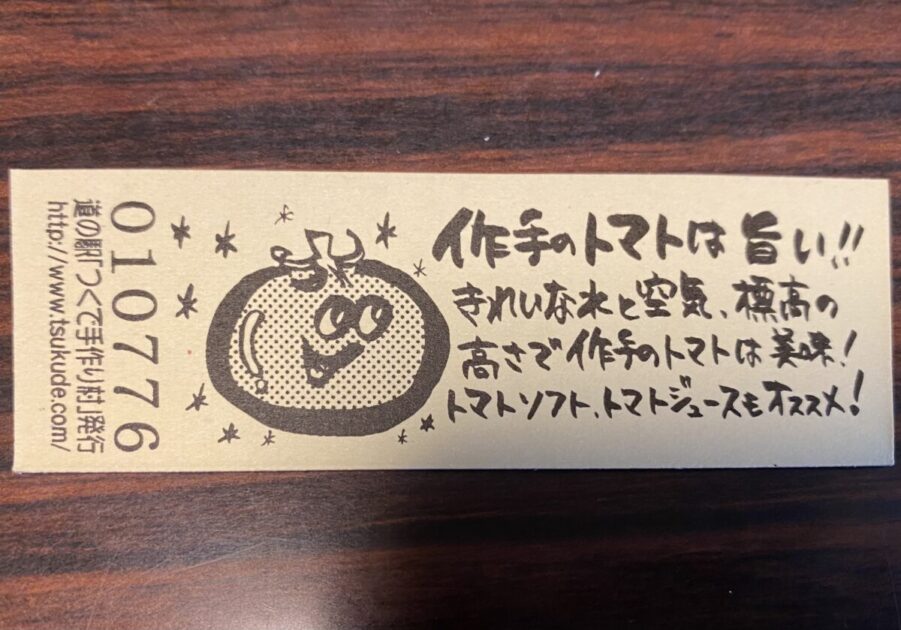 作手のトマトは旨い!!
きれいな水と空気、標高の
高さで作手のトマトは美味!
トマトソフト、トマトジュースもオススメ!
010776
道の駅「つくで手作り村」発行
http://www.tsukude.com/